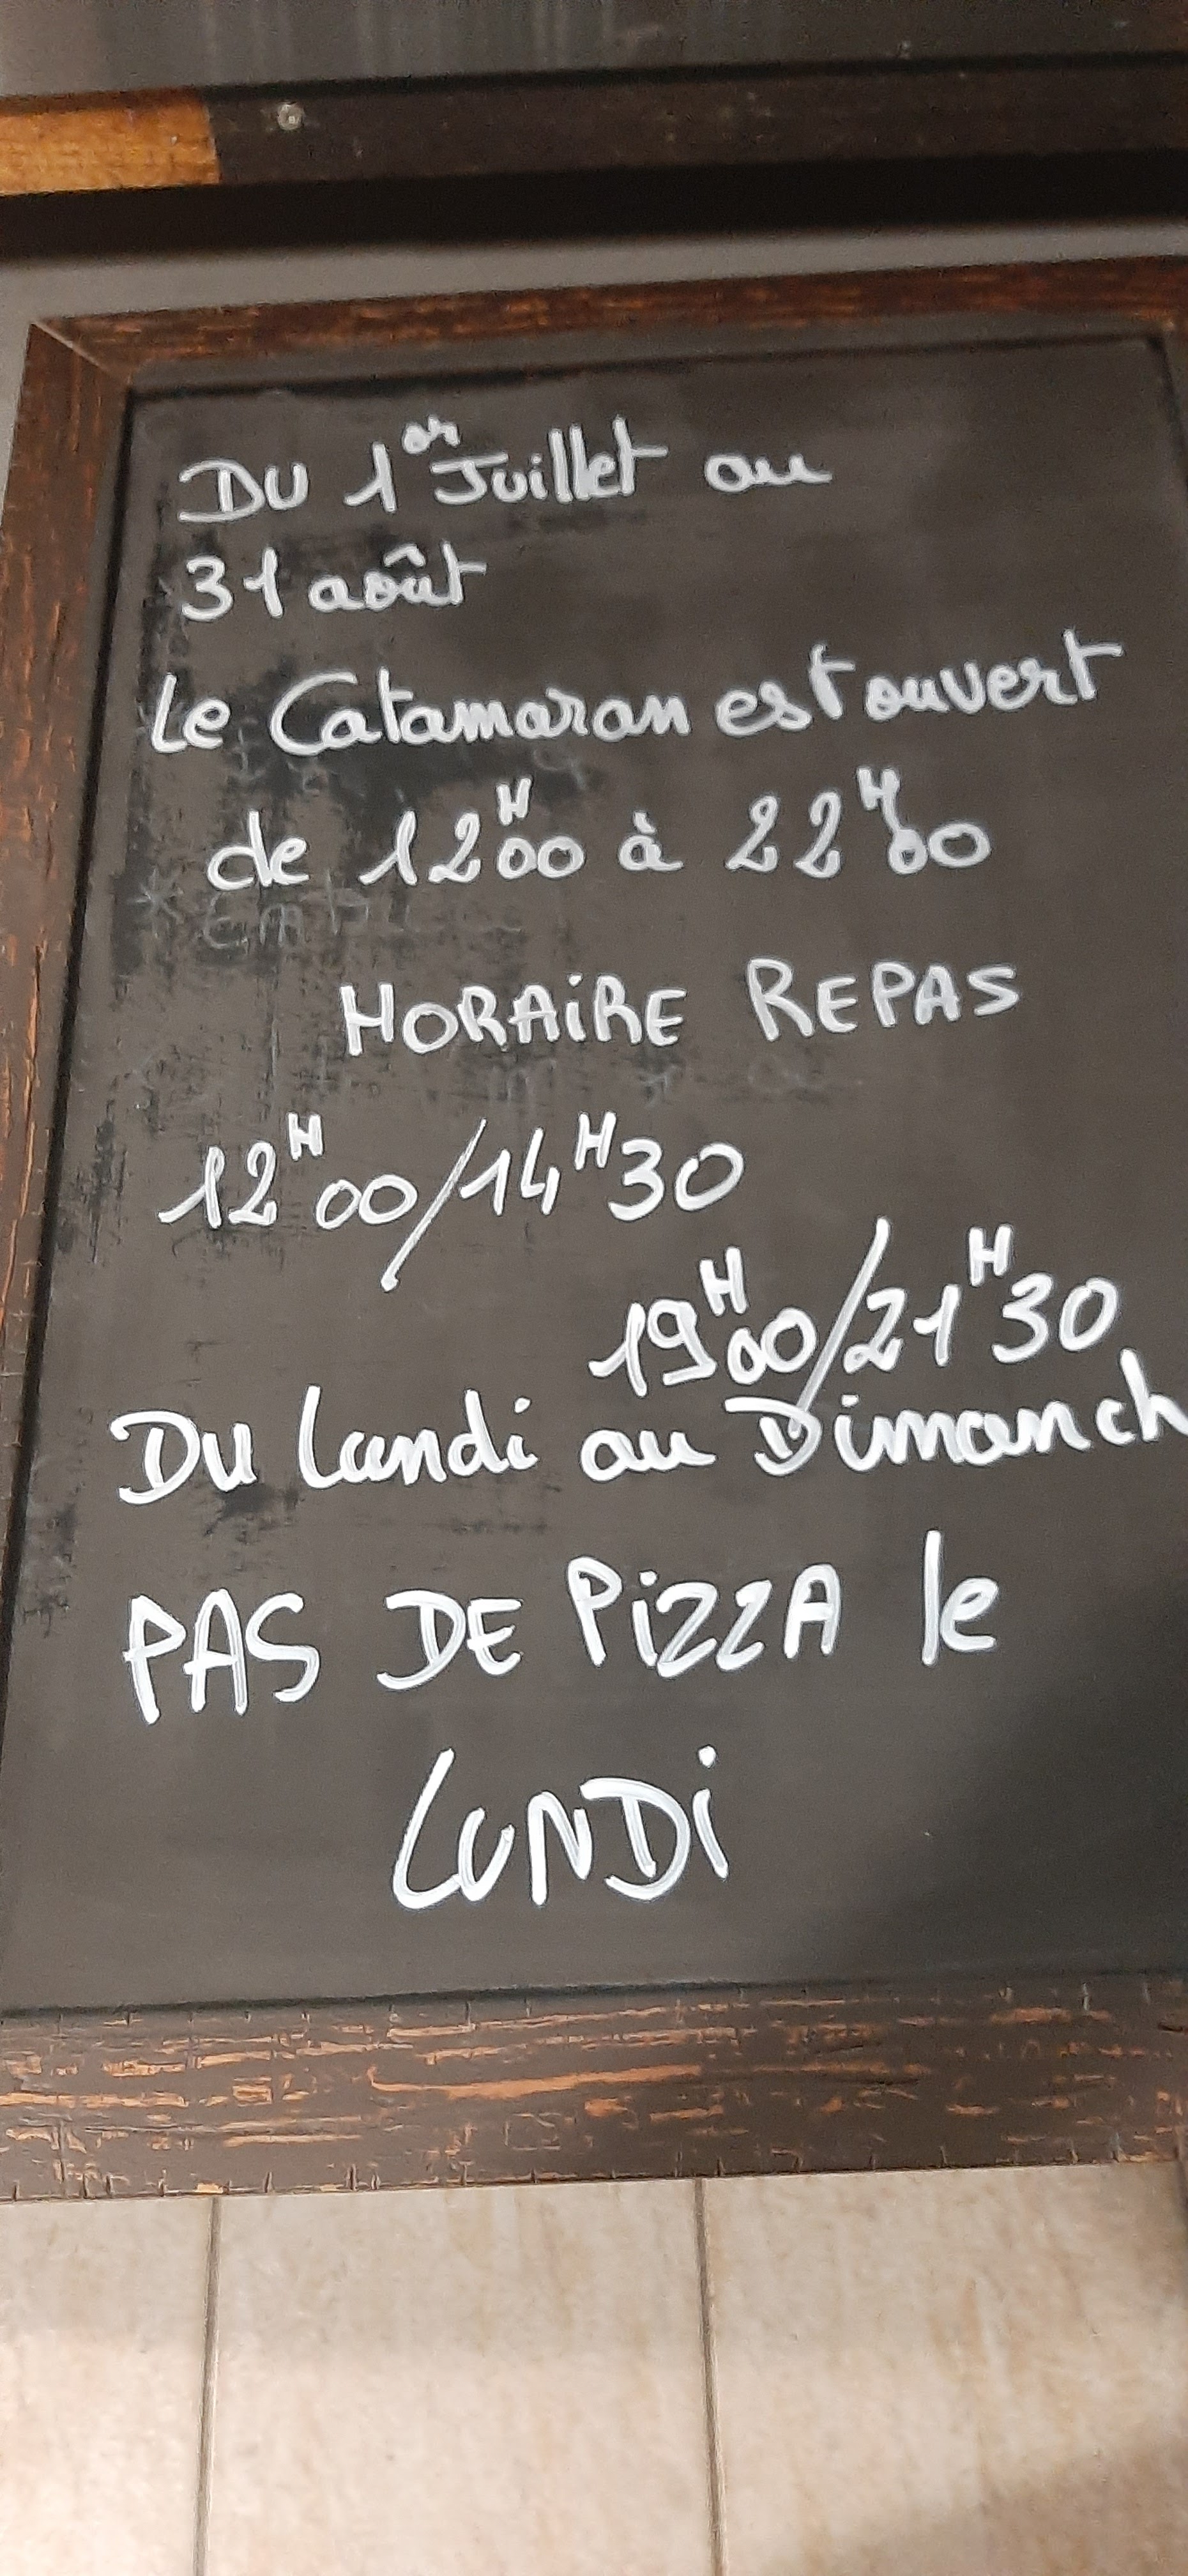 DU 1er Juillet au
31 août
Le Catamaran est ouvert
de 12H00 à 22H00
HORAIRE REPAS
12H00/14H30
19H00/21H30
Du Lundi au Dimanch
PAS DE PiZZA le
LUNDi